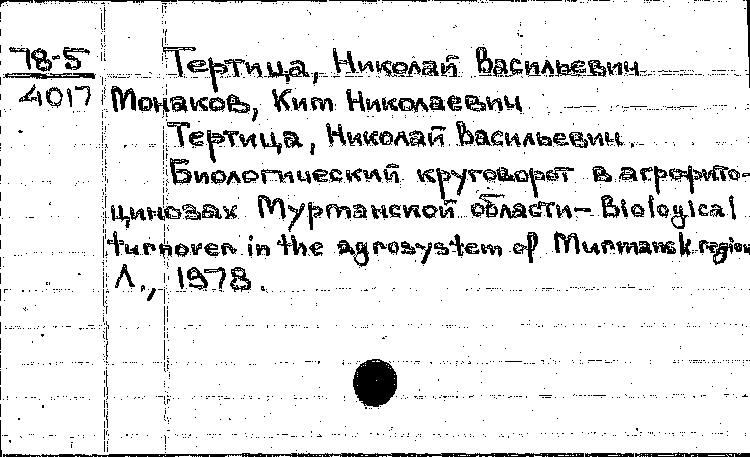 78-5
4017
Тертица, Николай Васильевич
Монаков, Ким Николаевич
Тертица, Николай Васильевич.
Биологический круговорот в агрофито-
цинозах Мурманской области - Biological
turnover in the agrosystem of Murmansk region
Л., 1978.